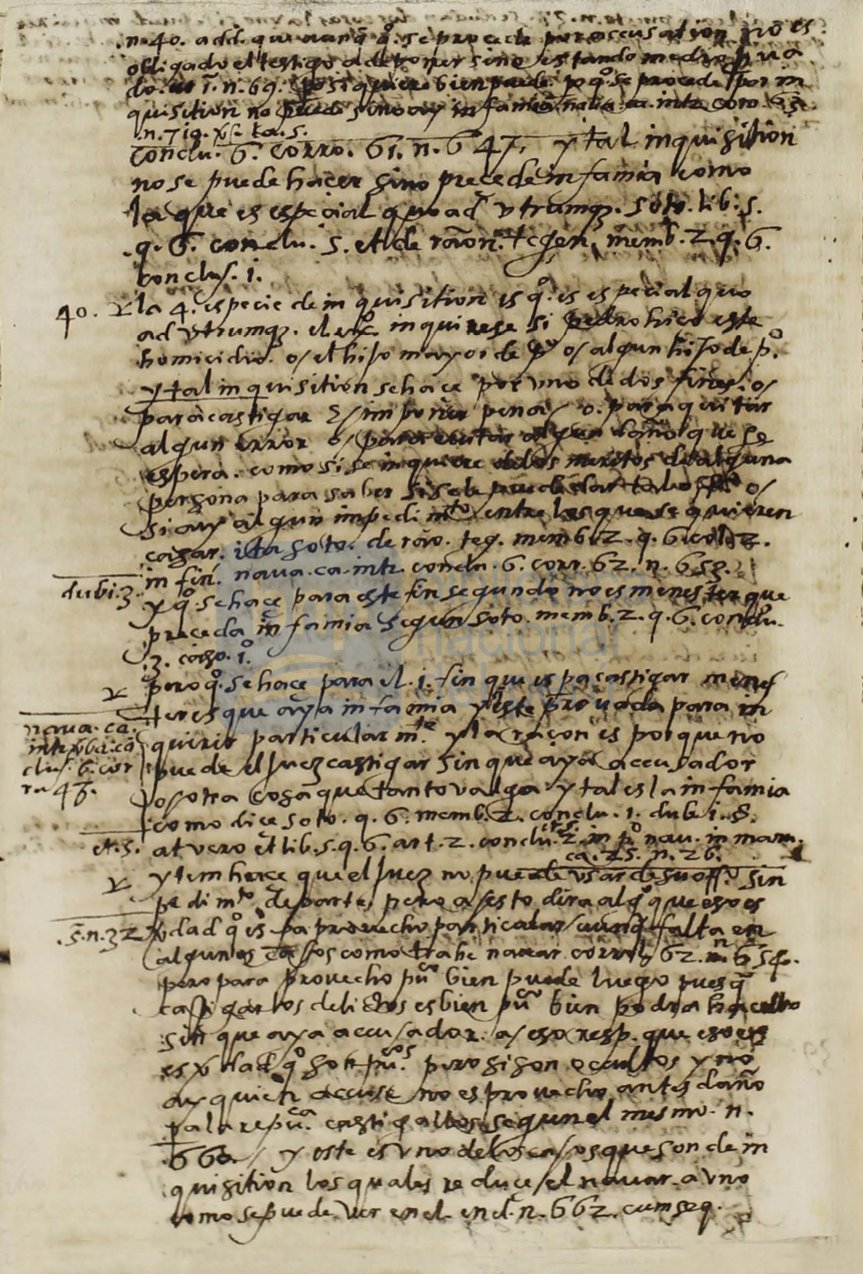 .n.40. add. que aunq̃ q̃. se procede por accusation no es
obligado el testigo a deponer sino estando medio prova
do. ut ĩ. n. 69. si quiere bien puede po q̃. se procede por in
quisition no puede sino ay infamia nava. ca. inter. coro. 65.
.n. 719.
conclu. 6. corro. 61. n. 647. y tal inquisition
no se puede hacer sino precede infamia como
la que es especial quo ad utrumq. soto. lib. 5.
.q. 6. conclu. 5. et de raõn. tegen. memb. 2. q. 6.
conclus. 1.
40. y la 4. especie de inquisition es q̃. es especial quo
ad utrumq. el inquirese si pedro hiço este
homicidio. o/ el hijo mayor de pº o/ algun hijo de pº.
y tal inquisition se hace por uno de dos fines. o/
para castigar e/ imponer pena/ o. para quitar
algun error o/ para evitar algun daño que se
espera. como si se inquiere de los meritos de alguna
persona para saber si se le puede dar tal o/
si ay algun impedimtº entre los que se quieren
casar. ita soto. de raõ. teg. memb. 2. q. 6. conclu. 2.
in fin. nava. ca. inter. conclu. 6. corr. 62. n. 658.
dubi. 3. y q̃. se hace para este fin segundo no es menester que
preceda infamia segun soto. memb. 2. q. 6. conclu.
3. caso. 1º.
y pero q̃. se hace para el. 1. fin que es pa castigar menes
ter es que aya infamia y este provada para in
nava. ca.
inter vba. cõ
clus. 6. cor
ro. 46.
quirir particularmte y la raçon es porque no
puede el juez castigar sin que aya accusador
o/ otra cosa que tanto valga y tal es la infamia
como dice soto. q. 6. memb. 2. conclu. 1. dubi. 8.
et. 5. at vero et lib. 5. q. 6. art. 2. conclu. 2. in pº nau. in man.
ca. 25. n. 26.
y ytem hace que el juez no puede usar de su offº sin
pedimtº de parte, pero a/ esto dira algº que eso es
.s. n. 32 vdad q̃. es pa provecho particular/ aunq̃ falta en
algunos casos como trahe navar. corrol. 62. n. 654.
pero para provecho puco bien puede luego pues q̃
castigar los delictos es bien puco bien podra hacello
sin que aya accusador. a/ eso resp. que eso es
es vdad q̃ son pucos. pero si son occultos y no
ay quien accuse no es provecho antes daño
pa la repuca castigallos segun el mesmo. n.
660. / y este es uno de los casos que son de in
quisition los quales reduce/ el navar. a uno
como se puede ver en el. en el. n. 662. cum seq.